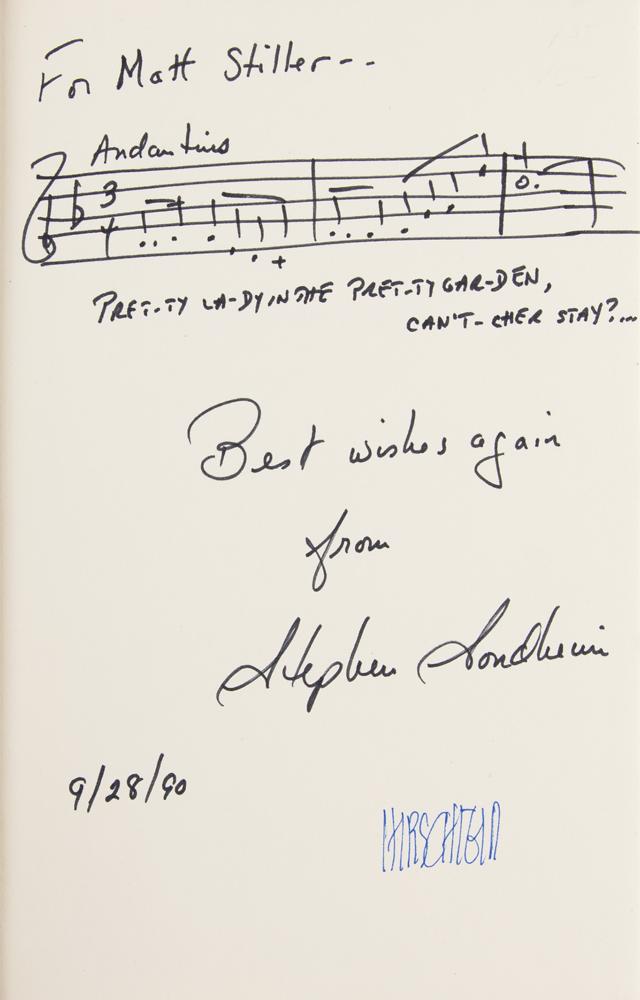 For Matt Stiller--
Andantino
3
4
PRET-TY LA-DY IN THE PRET-TY GAR-DEN,
CAN'T-CHER STAY?...
Best wishes again
from
Stephen Sondheim
9/28/90